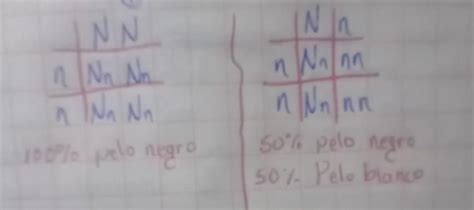 N N
n Nn Nn
n Nn Nn
100% pelo negro
N n
n Nn nn
n Nn nn
50% pelo negro
50% Pelo blanco